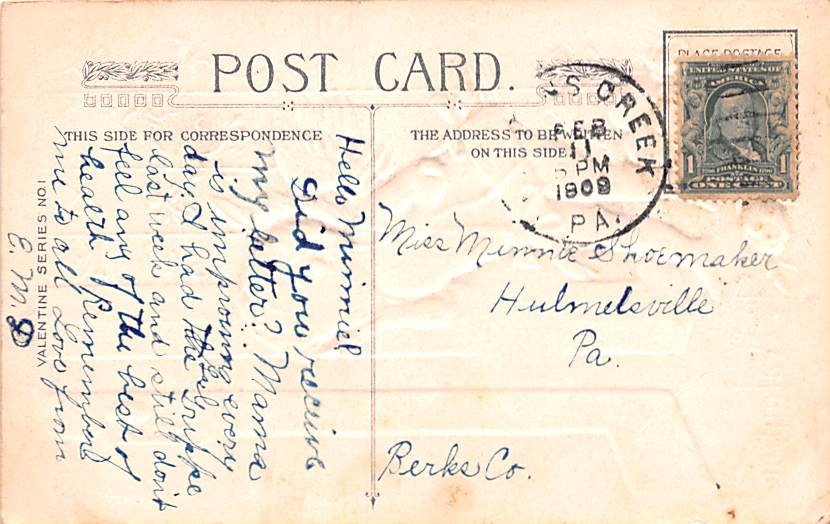 POST CARD.
PLACE POSTAGE
UNITED STATES OF
AMERICA
1 FRANKLIN 1
ONE CENT
S CREEK
FEB
11
PM
1909
PA.
THIS SIDE FOR CORRESPONDENCE
THE ADDRESS TO BE WRITTEN
ON THIS SIDE
Hello Minnie!
Did you receive
my letter? Mama
is improving every
day. I had the Grippe
last week and still don't
feel any of the best of
health Remember
me to all Love from
E. M. S
VALENTINE SERIES NO.1
Miss Minnie Shoemaker
Hulmelsville
Pa.
Berks Co.